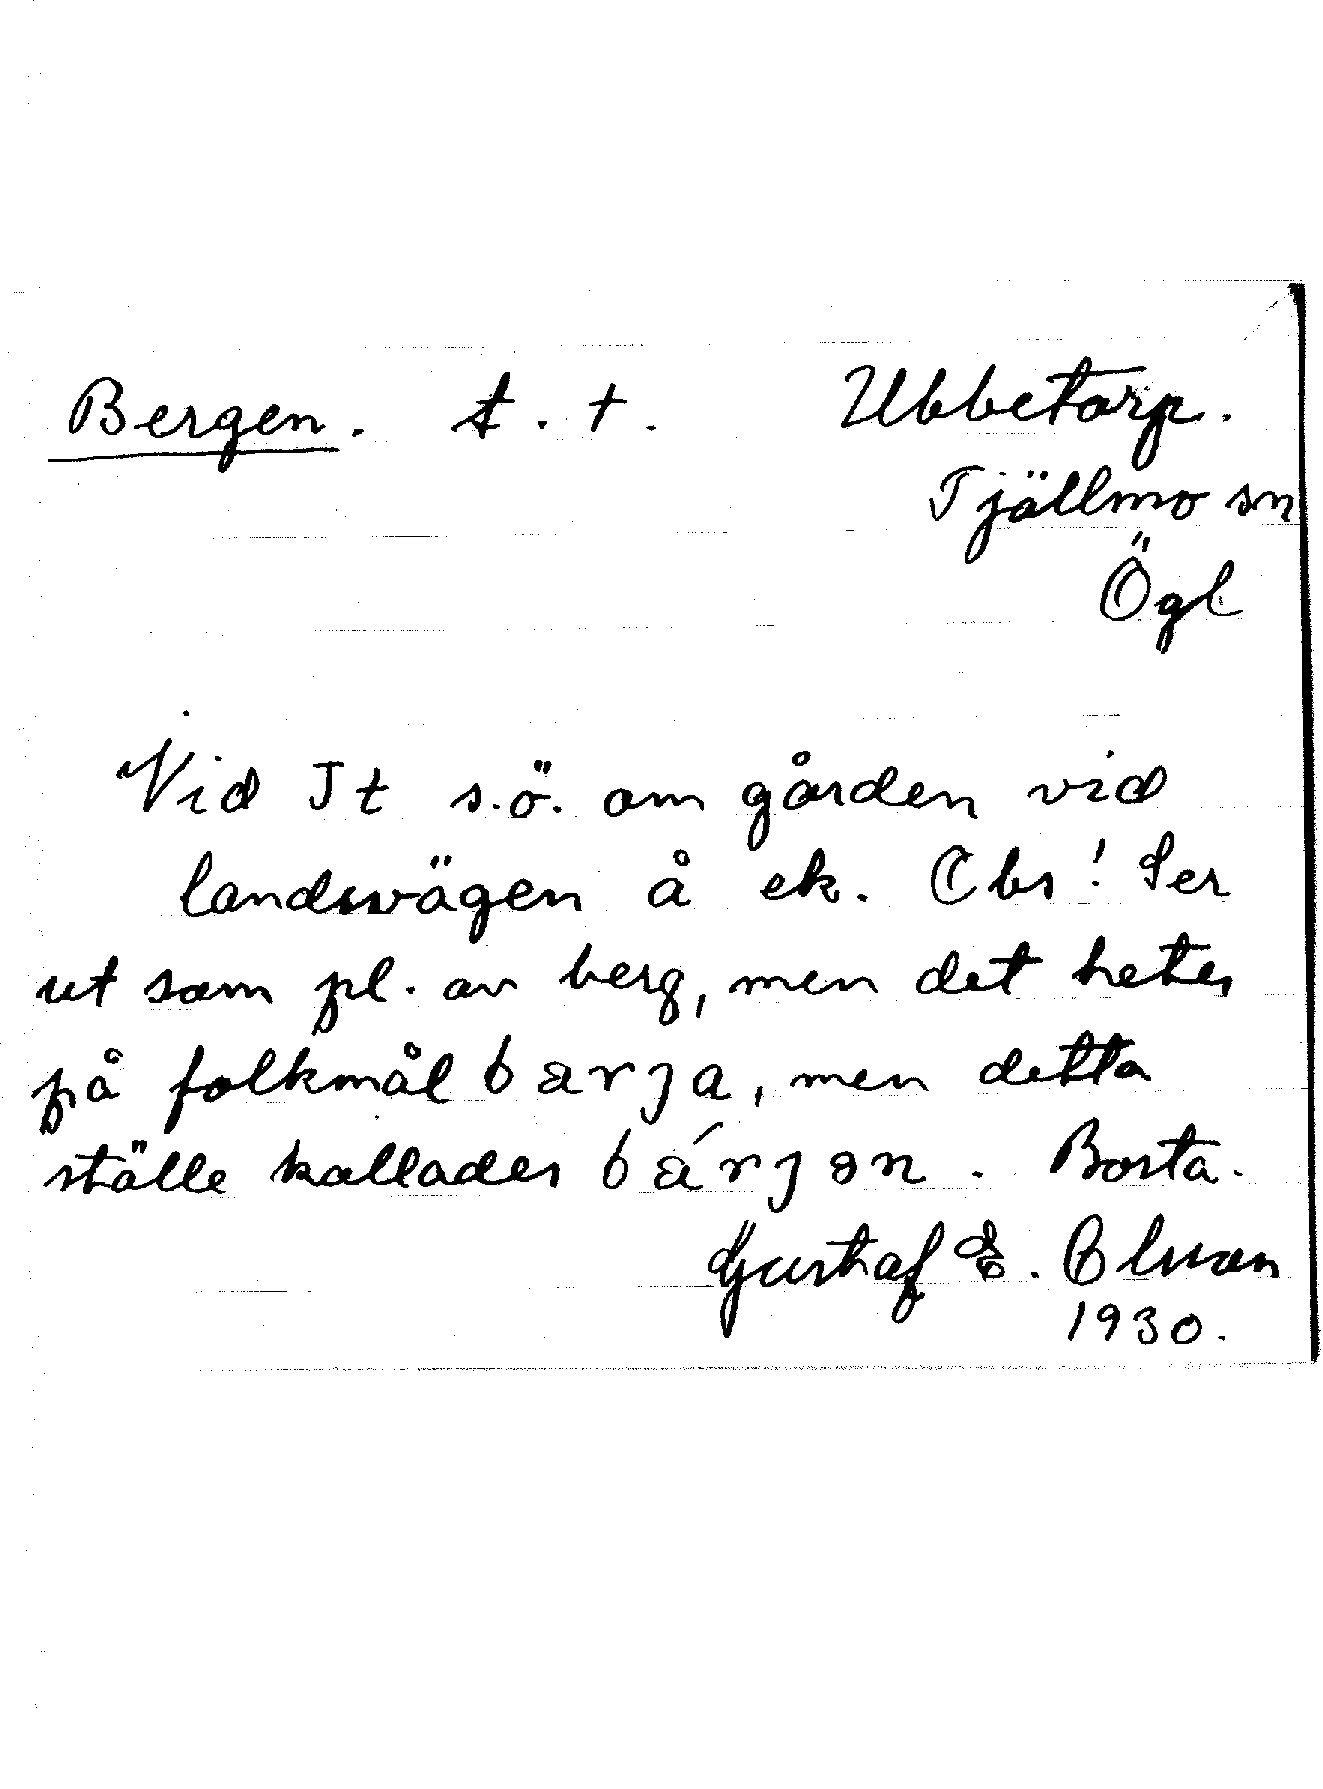 Bergen. t. t. Ubbetorp.
Tjällmo sn
Ögl
Vid It s.ö. om gården vid
landsvägen å ek. Obs! Ser
ut som pl. av berg, men det hetes
på folkmål barja, men detta
ställe kallades bárjən. Borta.
Gustaf E. Olsson
1930.